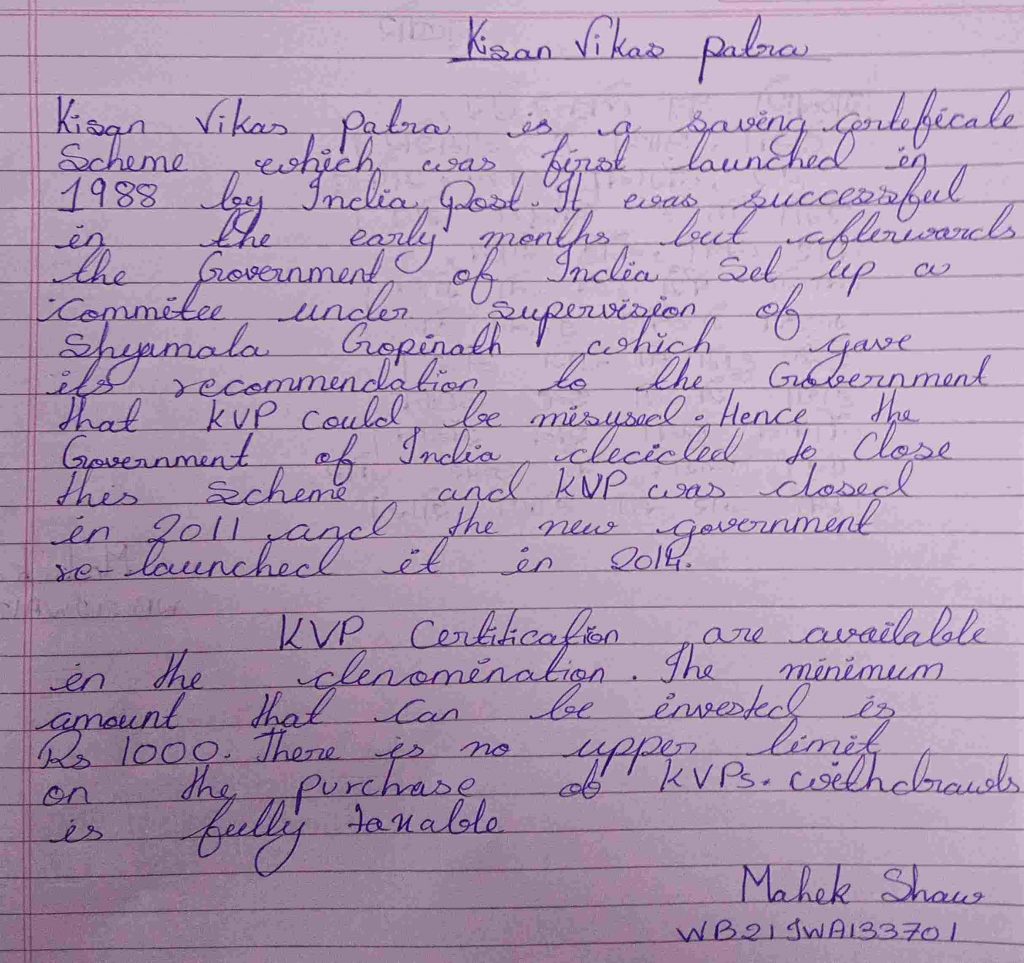 Kisan Vikas Patra
Kisan Vikas Patra is a saving certeficate
Scheme which was first launched in
1988 by India Post. It was successful
in the early months but afterwards
the Government of India set up a
Commitee under supervision of
Shyamala Gopinath which gave
its recommendation to the Government
that KVP could be misused. Hence the
Government of India decided to Close
this Scheme and KVP was closed
in 2011 and the new government
re-launched it in 2014.
KVP Certification are available
in the denomination. The minimum
amount that Can be invested is
Rs 1000. There is no upper limit
on the purchase of KVPs. withdrawls
is fully taxable
Mahek Shaw
WB21SWA133701